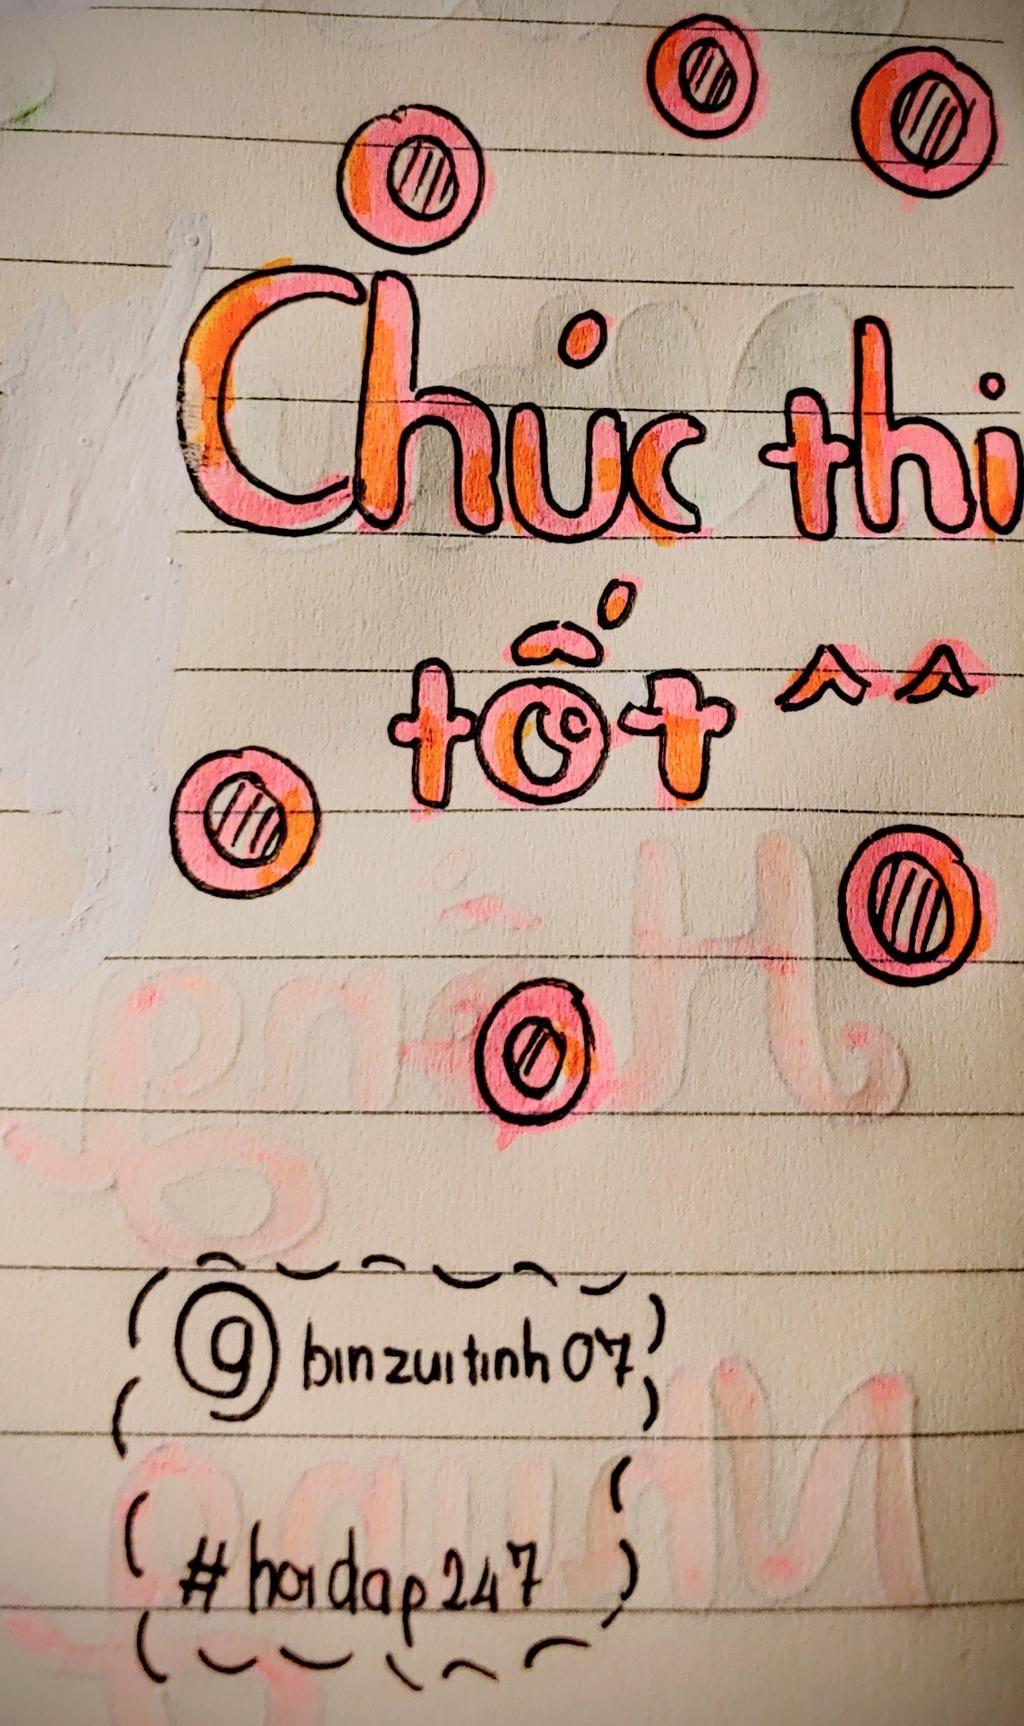 Chúc thi
tốt ^^
@ binzuitinh07
#hoidap247